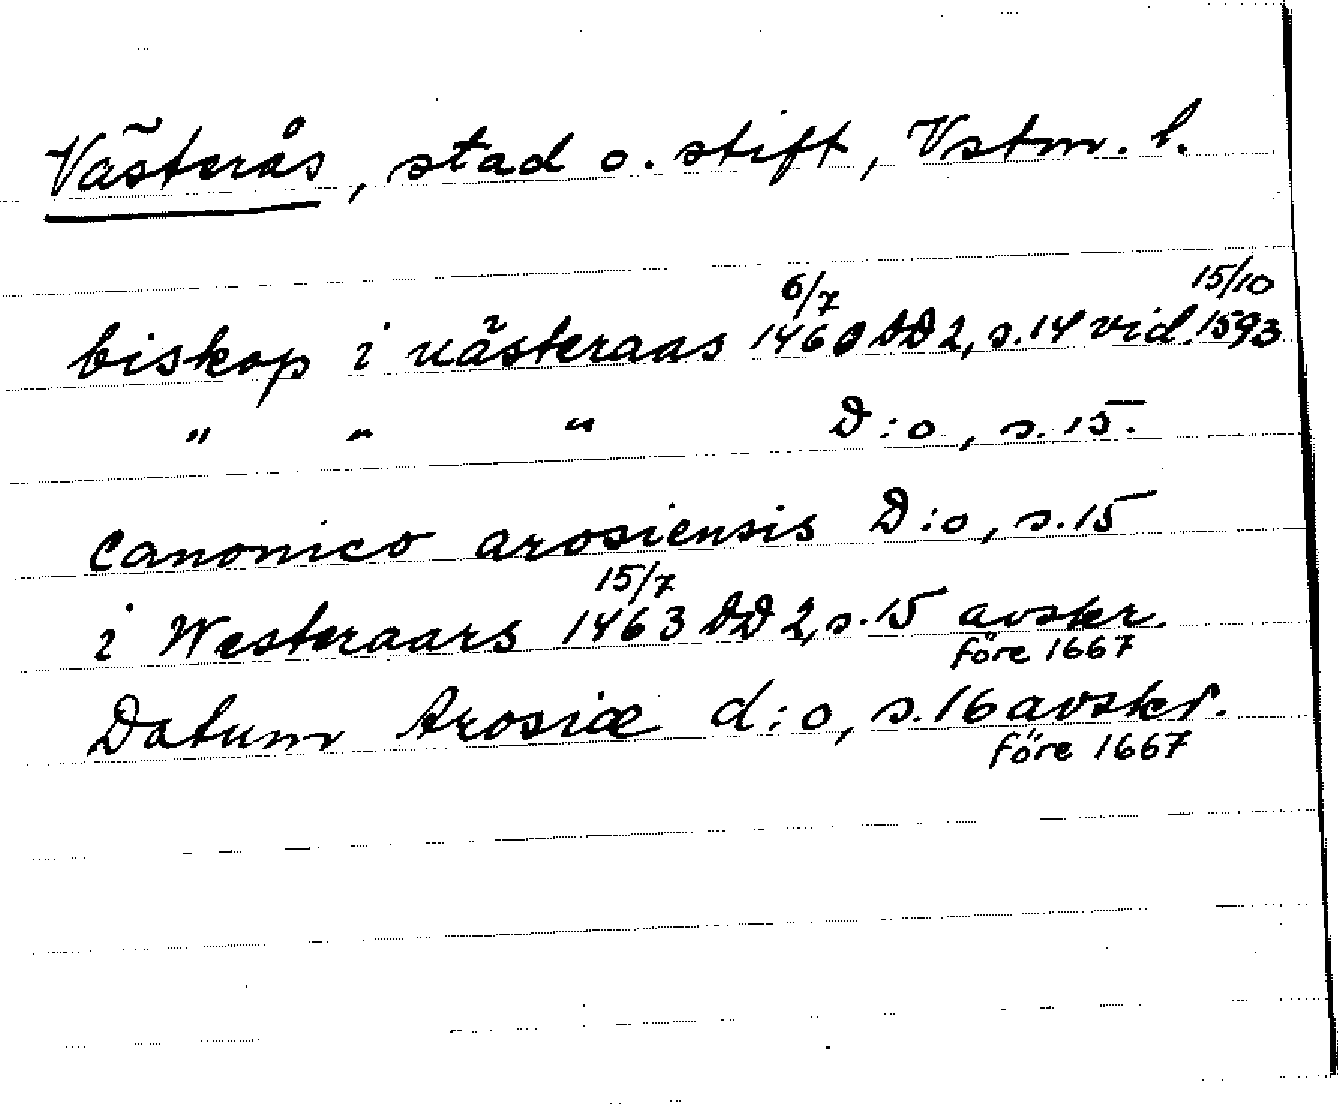 Västerås, stad o. stift, Vstm. l.
6/7 15/10
biskop i uästeraas 1460 DD 2, s. 14 vid. 1593
" " " D:o, s. 15.
Canonico arosiensis D:o, s. 15
15/7
i Westeraars 1463 DD 2, s. 15 avskr.
före 1667
Datum Arosiæ d:o, s. 16 avskr.
före 1667